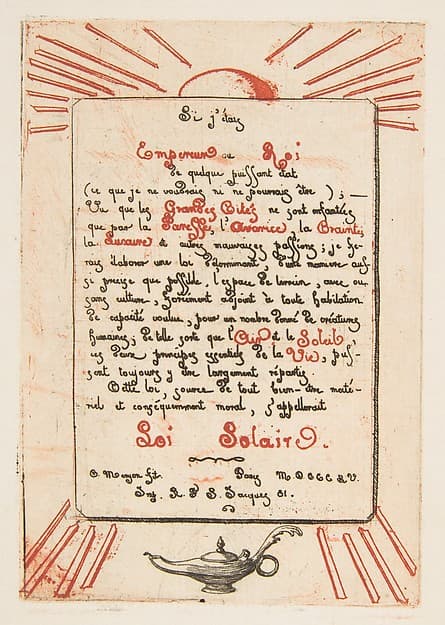 Si j'étais
Empereur ou Roi
de quelque puissant état
(ce que je ne voudrais ni ne pourrais être) ; —
Vu que les Grandes Cités ne sont enfantées
que par la Paresse, l'Avarice, la Crainte,
la Luxure et autres mauvaises passions ; je fe-
rais élaborer une loi déterminant, d'une manière aus-
si précise que possible, l'espace de terrain, avec ou
sans culture, forcément adjoint à toute habitation
de capacité voulue, pour un nombre donné de créatures
humaines ; de telle sorte que l'Air et le Soleil,
ces deux principes essentiels de la Vie, puis-
sent toujours y être largement répartis
Cette loi, source de tout bien-être maté-
riel et conséquemment moral, s'appellerait
Loi Solaire.
C. Meryon fit. Paris M.D.CCC.LV.
Imp. R. St. Jacques 81.